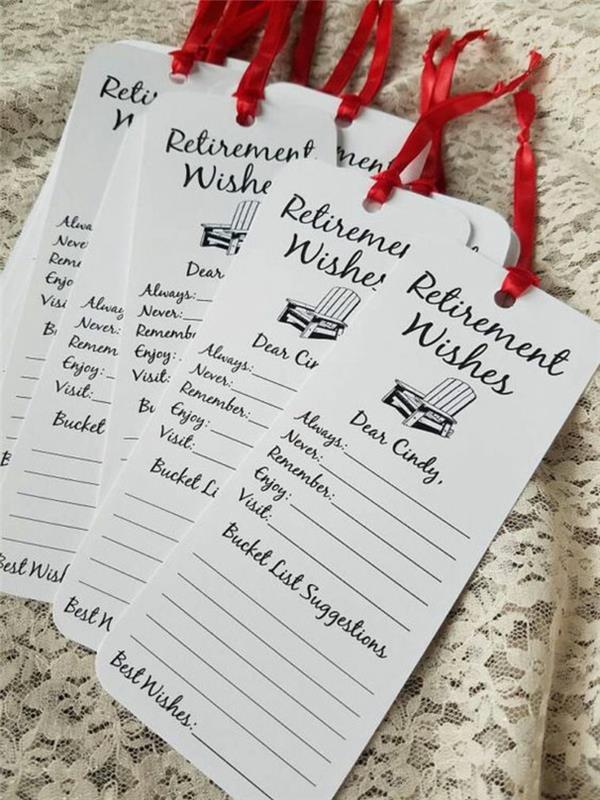 Retirement
Wishes
Dear Cindy,
Always:
Never:
Remember:
Enjoy:
Visit:
Bucket List Suggestions
Best Wishes:
Retireme
Wishes
Dear Cin
Always:
Never:
Remember:
Enjoy:
Visit:
Bucket Li
Best W
Retirement
Wishe
Dear
Always:
Never:
Rememb
Enjoy:
Visit:
Bu
ment
Reti
Alwa
Neve
Reme
Enjo
Visi
B
Alway
Never:
Remem
Enjoy:
Visit:
Bucket
Best Wis